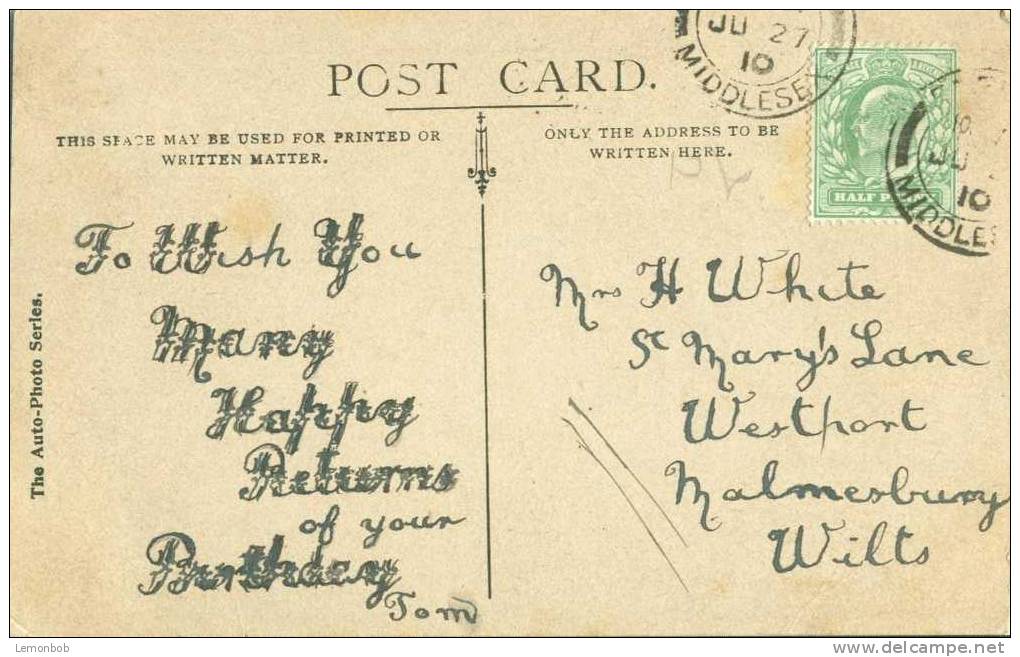 POST CARD.
THIS SPACE MAY BE USED FOR PRINTED OR
WRITTEN MATTER.
ONLY THE ADDRESS TO BE
WRITTEN HERE.
JU 27
10
MIDDLESB
HALF P
JU
10
MIDDLES
The Auto-Photo Series.
To Wish You
Many
Happy
Returns
of your
Birthday
Tom
Mrs H White
St Mary's Lane
Westport
Malmesbury
Wilts
Lemonbob
www.delcampe.net